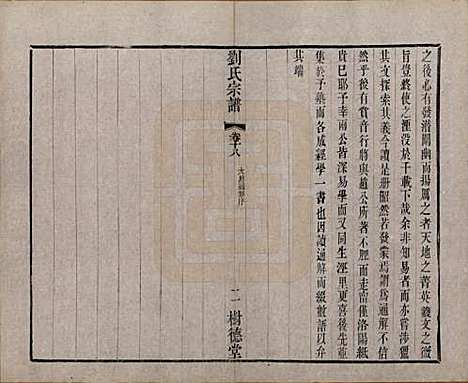 之後必有發潛闡幽而揚厲之者天地之菁英羲文之微
旨豈終使之湮没於千載下哉余非知易者而亦嘗涉獵
其文探索其義今讀是册昭然若發蒙焉謂爲通解不信
然乎後有賞音行將與趙公所著不脛而走甯僅洛陽紙
貴已耶予幸兩公皆深易學而又同生涇里更喜後先薈
集於予義而各成經學一書也因讀通解而綴數語以弁
其端
劉氏宗譜
卷十八
二
樹德堂